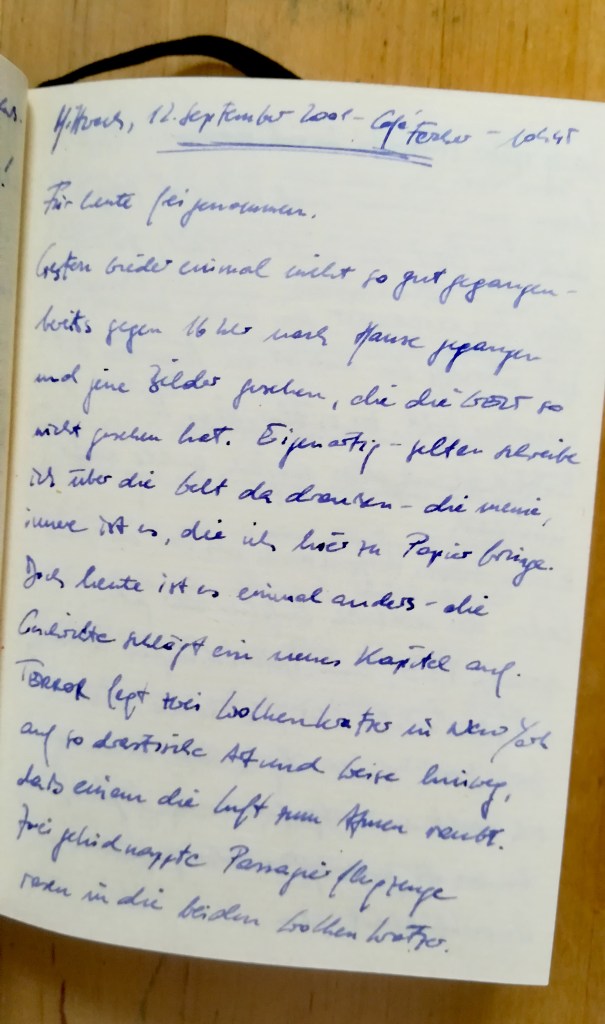 Mittwoch, 12. September 2001 - Café - 10h45
Für heute freigenommen.
Gestern wieder einmal nicht so gut gegangen -
bereits gegen 16 Uhr nach Hause gegangen
und jene Bilder gesehen, die die WELT so
nicht gesehen hat. Eigenartig - selten schreibe
ich über die Welt da draußen - die meine,
innere ist es, die ich hier zu Papier bringe.
Doch heute ist es einmal anders - die
Geschichte schlägt ein neues Kapitel auf.
TERROR fegt zwei Wolkenkratzer in New York
auf so drastische Art und Weise hinweg,
dass einem die Luft zum Atmen raubt.
Zwei gekidnappte Passagierflugzeuge
rasen in die beiden Wolkenkratzer.